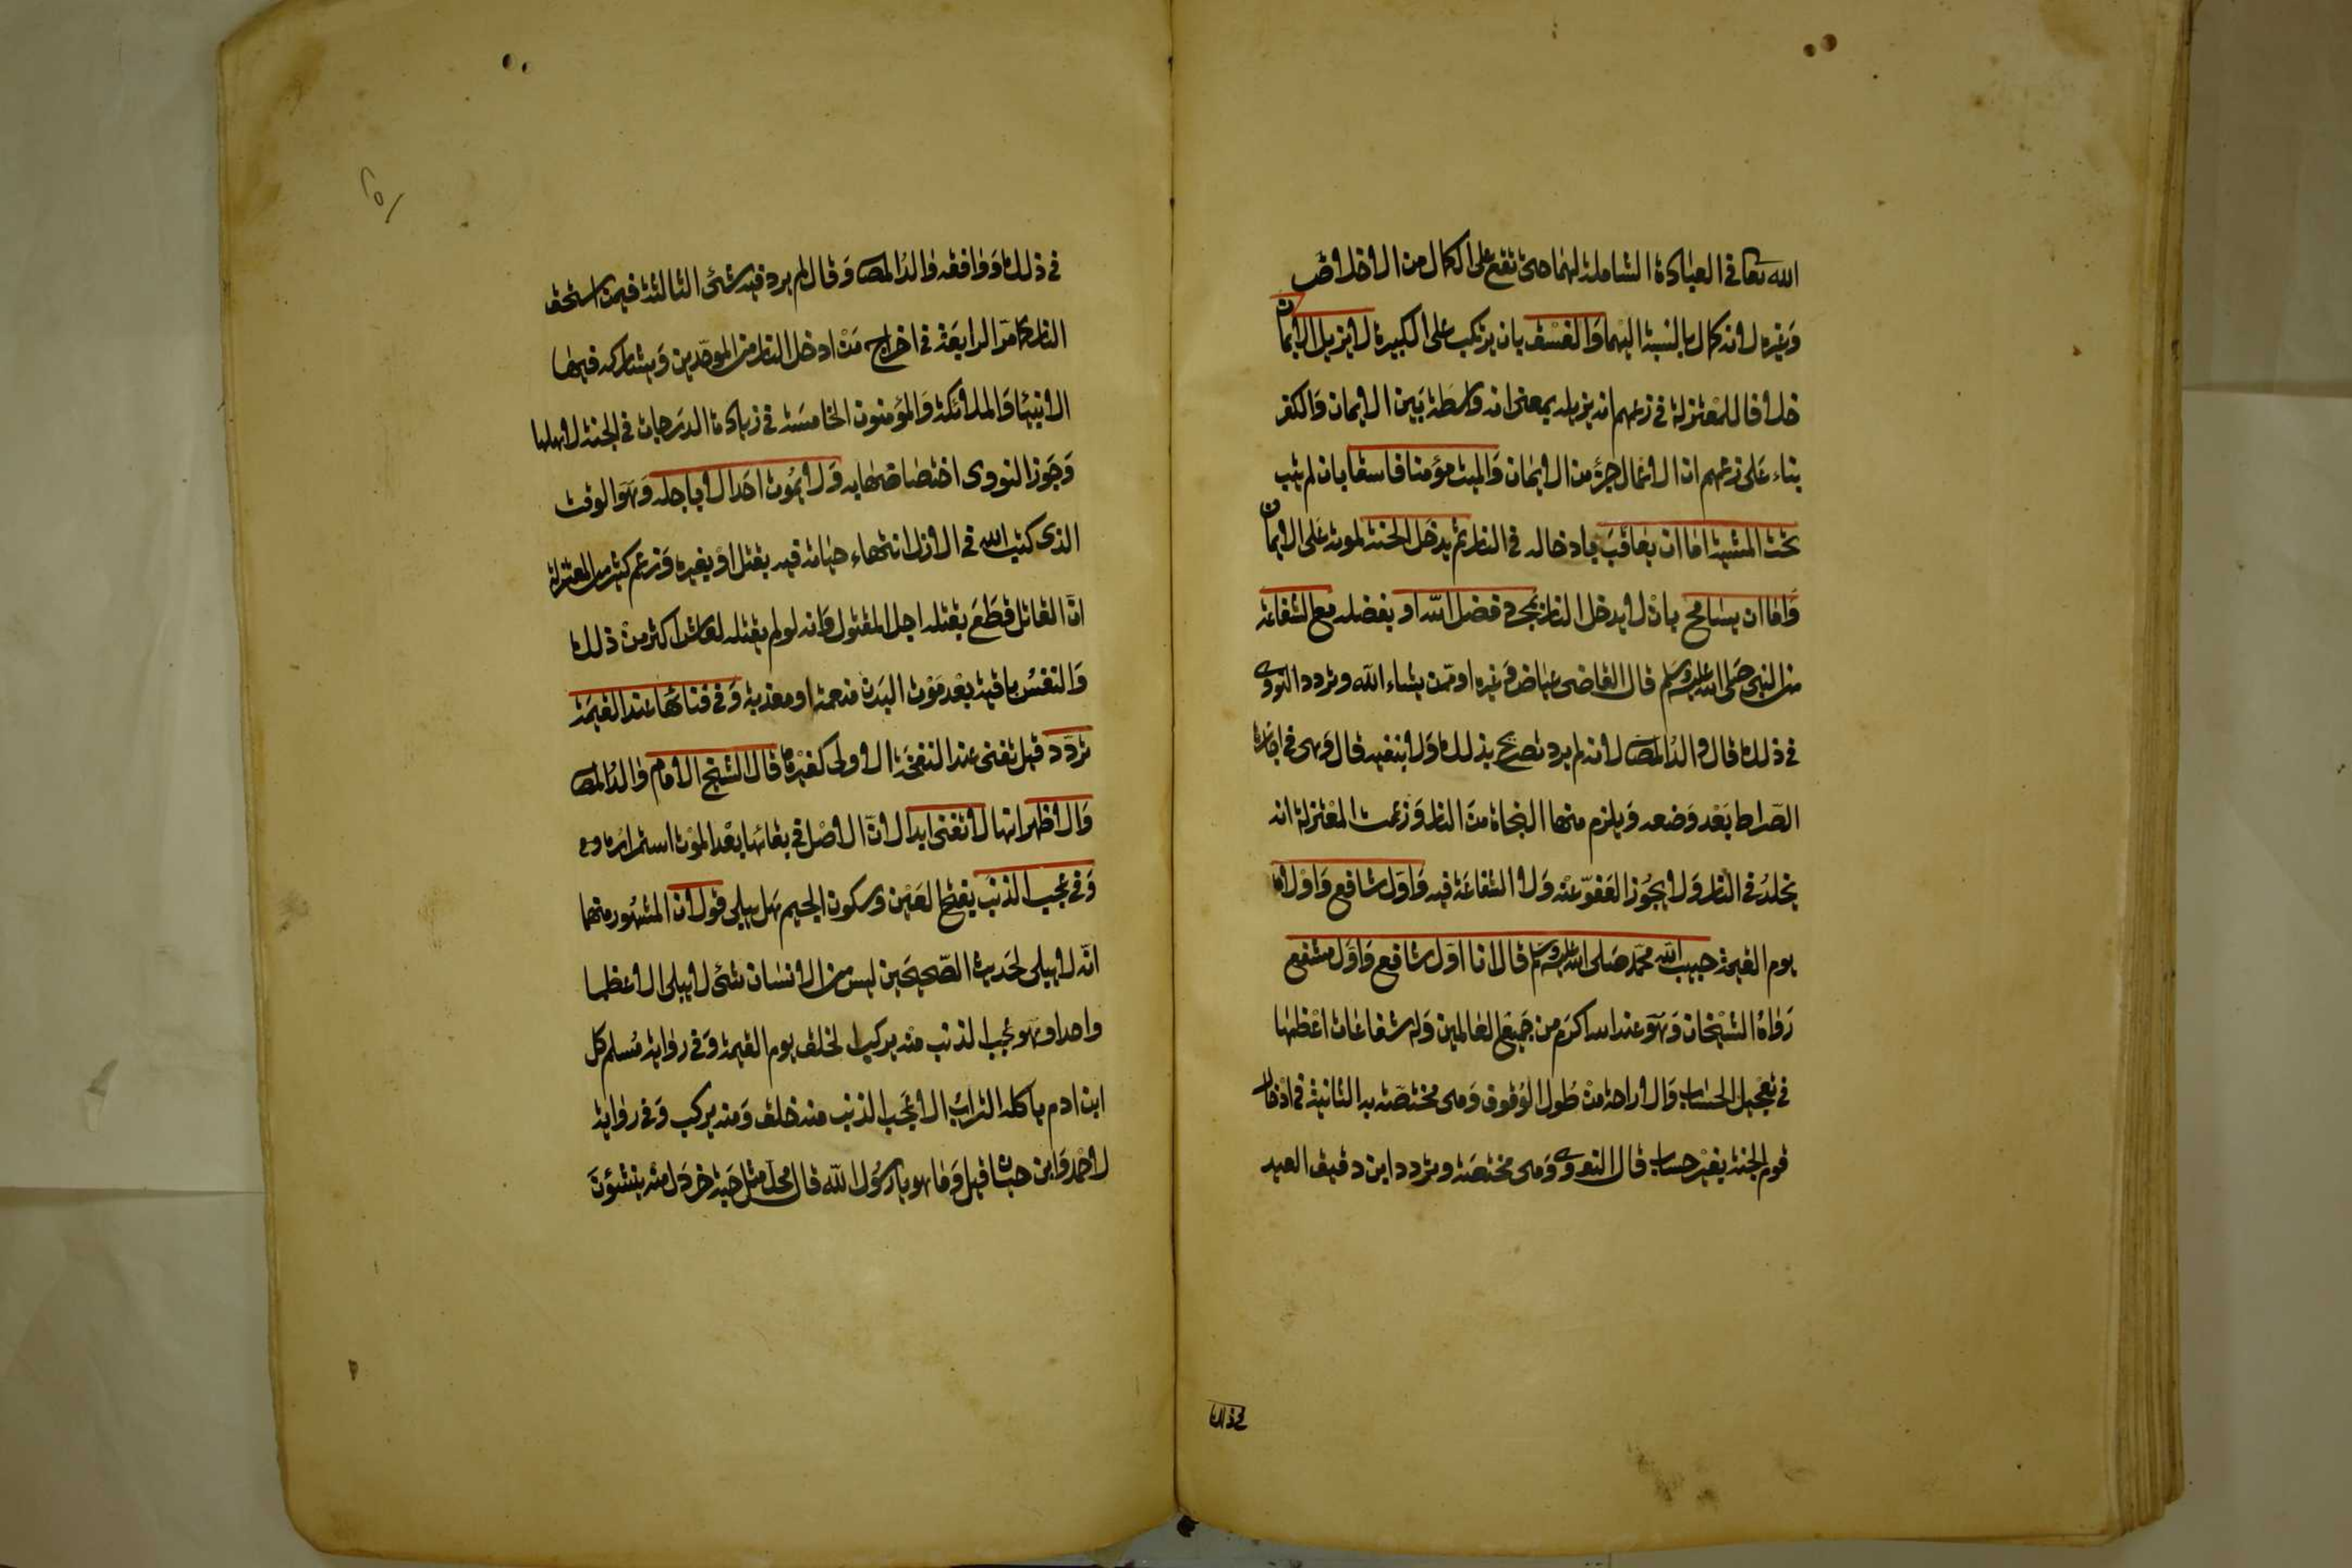 الله تعا في العبادة الشاملة لهما حتى تقع على الكمال من الاخلاص
وغيره لانه كمال بالنسبة اليهما والفسق بان يرتكب على الكبيرة لا يزيل الايمان
خلافا للمعتزلة في زعمهم انه يزيله بمعنى انه واسطة بين الايمان والكفر
بناء على زعمهم ان الاعمال جزؤ من الايمان والميت مؤمنا فاسقا بان لم يتب
تحت المشيئة اما ان يعاقب بادخاله في النار ثم يدخل الجنة لموته على الايمان
واما ان يسامح بان لا يدخل النار بمجرد فضل الله او بفضله مع الشفاعة
من النبي صلى الله عليه وسلم قال القاضي عياض وغيره او ممن يشاء الله وتردد النووي
في ذلك قال والد المص لانه لم يرد تصريح بذلك ولا بنفيه قال وهي في اجازة
الصراط بعد وضعه ويلزم منها النجاة من النار وزعمت المعتزلة انه
يخلد في النار ولا يجوز العفو عنه ولا الشفاعة فيه واول شافع واولاه
يوم القيمة حبيب الله محمد صلى الله عليه وسلم قال انا اول شافع واول مشفع
رواه الشيخان وهو عند الله اكرم من جميع العالمين وله شفاعات اعظمها
في تعجيل الحساب والاراحة من طول الوقوف وهي مختصة به الثانية في ادخال
قوم الجنة بغير حساب قال النووي وهي مختصة وتردد ابن دقيق العيد
في ذلك
في ذلك ووافقه والد المص وقال لم يرد فيه شئ الثالثة فيمن استحق
النار كما مر الرابعة في اخراج من ادخل النار من الموحدين ويشاركه فيها
الانبيا والملائكة والمؤمنون الخامسة في زيادة الدرجات في الجنة لاهلها
وجوز النووي اختصاصها به ولا يموت احد الا باجله وهو الوقت
الذي كتب الله في الازل انتهاء حياته فيه بقتل او بغيره وزعم كثير من المعتزلة
ان القاتل قطع بقتله اجل المقتول وانه لو لم يقتله لعاش اكثر من ذلك
والنفس باقية بعد موت البدن منعمة او معذبة وفي فنائها عند القيمة
تردد قيل تفنى عند النفخة الاولى كغيرها قال الشيخ الامام والد المص
والاظهر انها لا تفنى ابدا لان الاصل في بقائها بعد الموت استمراره
وفي عجب الذنب بفتح العين وسكون الجيم هل يبلى قولان المشهور منهما
انه لا يبلى لحديث الصحيحين ليس من الانسان شئ لا يبلى الا عظما
واحدا وهو عجب الذنب منه يركب الخلق يوم القيمة وفي رواية مسلم كل
ابن ادم ياكله التراب الا عجب الذنب منه خلق ومنه يركب وفي رواية
لاحمد وابن حبان قيل وما هو يا رسول الله قال مثل حبة خردل منه ينشئون